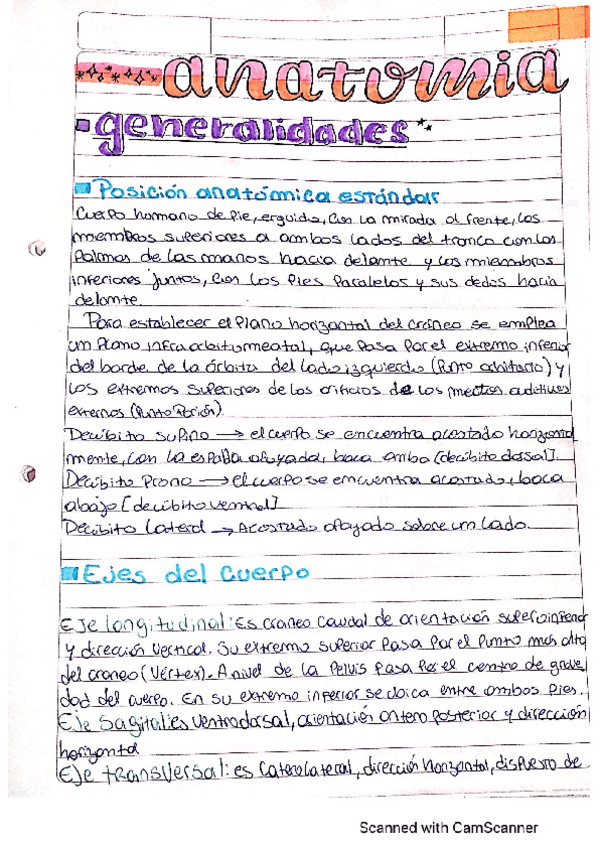 anatomia
generalidades
Posición anatómica estándar
Cuerpo humano de pie, erguido, con la mirada al frente, los
miembros superiores a ambos lados del tronco con las
palmas de las manos hacia delante y los miembros
inferiores juntos, con los pies paralelos y sus dedos hacia
delante.
Para establecer el plano horizontal del cráneo se emplea
un plano infraorbitomeatal, que pasa por el extremo inferior
del borde de la órbita del lado izquierdo (Punto orbitario) y
los extremos superiores de los orificios de los meatos auditivos
externos (Punto Porión).
Decúbito supino → el cuerpo se encuentra acostado horizontal
mente, con la espalda apoyada, boca arriba [decúbito dorsal].
Decúbito Prono → el cuerpo se encuentra acostado, boca
abajo [decúbito ventral]
Decúbito Lateral → Acostado apoyado sobre un lado.
Ejes del cuerpo
Eje longitudinal: Es craneo caudal de orientación superoinferior
y dirección vertical. Su extremo superior pasa por el punto mas alto
del craneo (Vértex). A nivel de la pelvis pasa por el centro de grave
dad del cuerpo. En su extremo inferior se ubica entre ambos pies.
Eje Sagital: es ventrodorsal, orientación antero posterior y dirección
horizontal
Eje transversal: es laterolateral, dirección horizontal, dispuesto de
Scanned with CamScanner